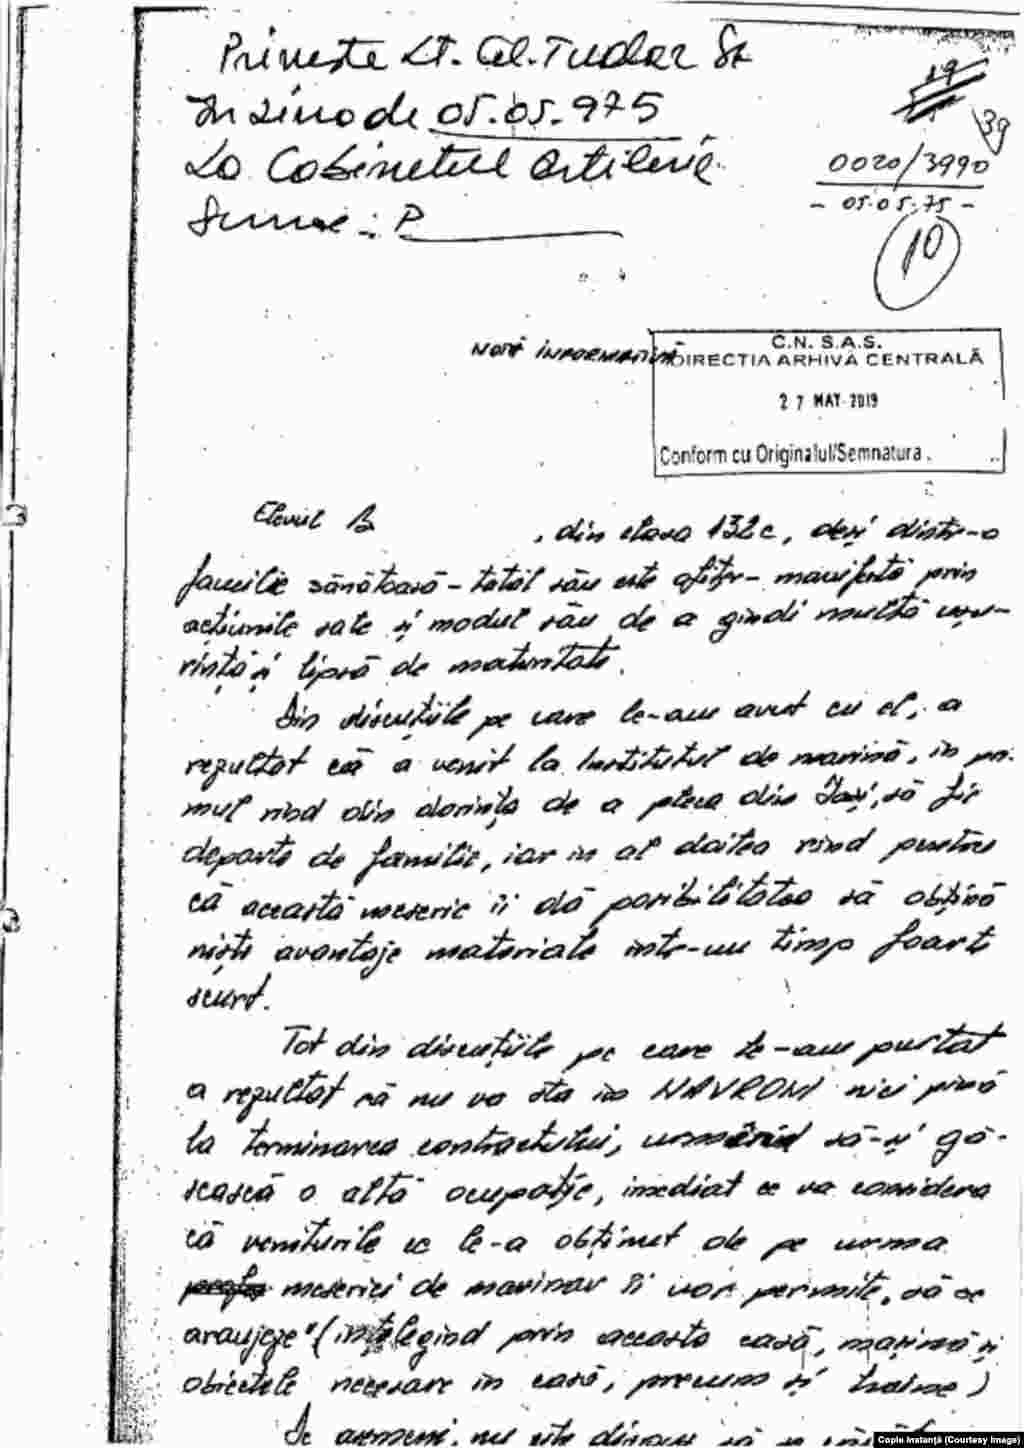 Primește Lt. Col. Tudor St
În ziua de 05.05.975
La Cabinetul Artilerie
Semnează: P
19
39
0020/3990
- 05.05.75 -
10
NOTĂ INFORMATIVĂ
C.N. S.A.S.
DIRECTIA ARHIVĂ CENTRALĂ
27 MAY 2019
Conform cu Originalul/Semnatura
Elevul B , din clasa 132c, deși dintr-o
familie sănătoasă - tatăl său este ofițer - manifestă prin
acțiunile sale și modul său de a gîndi multă ușu-
rință și lipsă de maturitate.
Din discuțiile pe care le-am avut cu el, a
rezultat că a venit la Institutul de marină, în pri-
mul rînd din dorința de a pleca din Iași, să fie
departe de familie, iar în al doilea rînd pentru
că această meserie îi dă posibilitatea să obțină
niște avantaje materiale într-un timp foarte
scurt.
Tot din discuțiile pe care le-am purtat
a rezultat că nu va sta în NAVROM nici pînă
la terminarea contractului, urmărind să-și gă-
sească o altă ocupație, imediat ce va considera
că veniturile ce le-a obținut de pe urma
meseriei de marinar îi vor permite „să se
aranjeze" (înțelegînd prin aceasta casă, mașină și
obiectele necesare în casă, precum și haine)
De asemeni, nu este dispus să
Copie Instanță (Courtesy Image)